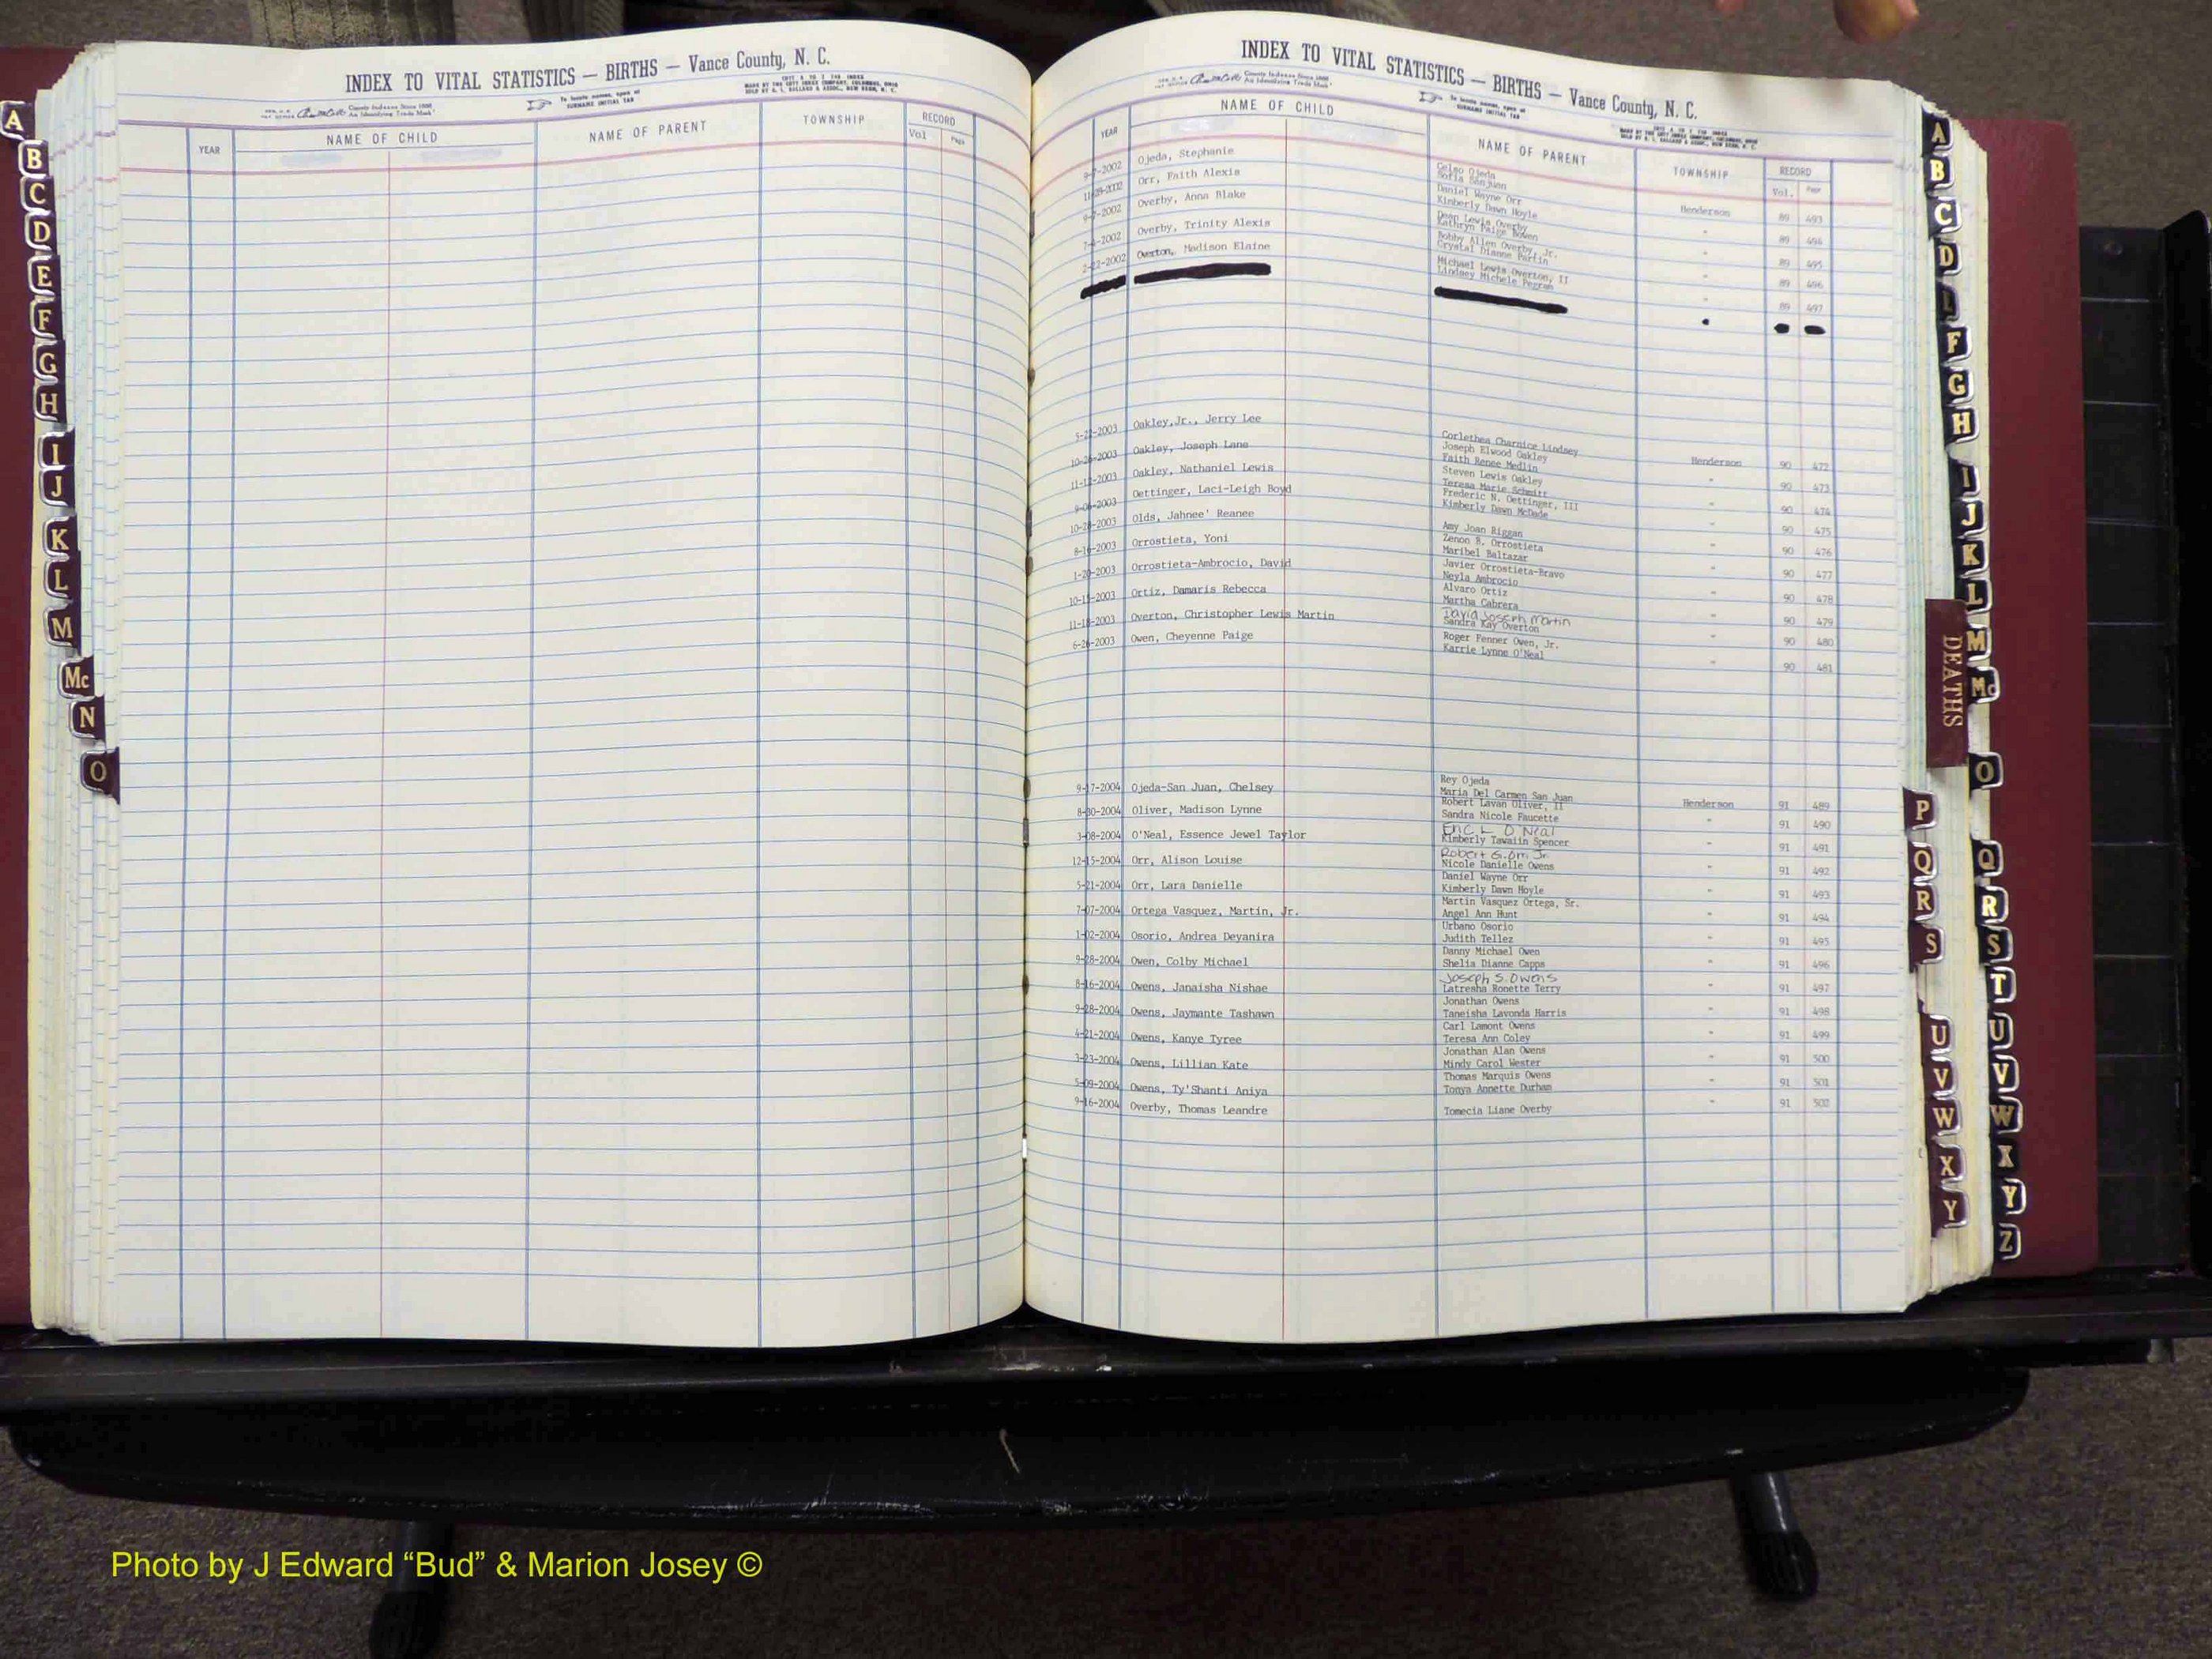 INDEX TO VITAL STATISTICS — BIRTHS — Vance County, N. C.
County Indexes Since 1888
An Identifying Trade Mark
To locate names, open at
SURNAME INITIAL TAB
YEAR NAME OF CHILD NAME OF PARENT TOWNSHIP RECORD
Vol Page
INDEX TO VITAL STATISTICS — BIRTHS — Vance County, N. C.
County Indexes Since 1888
An Identifying Trade Mark
To locate names, open at
SURNAME INITIAL TAB
YEAR NAME OF CHILD NAME OF PARENT TOWNSHIP RECORD
Vol. Page
9-7-2002 Ojeda, Stephanie Celso Ojeda Henderson 89 493
Sofia Sanjuan
Orr, Faith Alexis Daniel Wayne Orr " 89 494
Kimberly Dawn Hoyle
9-7-2002 Overby, Anna Blake Dean Lewis Overby " 89 495
Kathryn Paige Bowen
7-4-2002 Overby, Trinity Alexis Bobby Allen Overby, Jr. " 89 496
Crystal Dianne Parfin
2-22-2002 Overton, Madison Elaine Michael Lewis Overton, II " 89 497
Lindsey Michele Pegram
5-22-2003 Oakley, Jr., Jerry Lee Corlethea Charnice Lindsey Henderson 90 472
10-26-2003 Oakley, Joseph Lane Joseph Elwood Oakley " 90 473
Faith Renee Medlin
11-12-2003 Oakley, Nathaniel Lewis Steven Lewis Oakley " 90 474
Teresa Marie Schmitt
9-06-2003 Oettinger, Laci-Leigh Boyd Frederic N. Oettinger, III " 90 475
Kimberly Dawn McDade
10-28-2003 Olds, Jahnee' Reanee Amy Joan Riggan " 90 476
8-16-2003 Orrostieta, Yoni Zenon B. Orrostieta " 90 477
Maribel Baltazar
1-20-2003 Orrostieta-Ambrocio, David Javier Orrostieta-Bravo " 90 478
Neyla Ambrocio
10-15-2003 Ortiz, Damaris Rebecca Alvaro Ortiz " 90 479
Martha Cabrera
11-18-2003 Overton, Christopher Lewis Martin David Joseph Martin " 90 480
Sandra Kay Overton
6-26-2003 Owen, Cheyenne Paige Roger Fenner Owen, Jr. " 90 481
Karrie Lynne O'Neal
9-17-2004 Ojeda-San Juan, Chelsey Rey Ojeda Henderson 91 489
Maria Del Carmen San Juan
8-30-2004 Oliver, Madison Lynne Robert Lavan Oliver, II " 91 490
Sandra Nicole Faucette
3-08-2004 O'Neal, Essence Jewel Taylor Eric L O'Neal " 91 491
Kimberly Tawaiin Spencer
12-15-2004 Orr, Alison Louise Robert G. Orr Jr. " 91 492
Nicole Danielle Owens
5-21-2004 Orr, Lara Danielle Daniel Wayne Orr " 91 493
Kimberly Dawn Hoyle
7-07-2004 Ortega Vasquez, Martin, Jr. Martin Vasquez Ortega, Sr. " 91 494
Angel Ann Hunt
1-02-2004 Osorio, Andrea Deyanira Urbano Osorio " 91 495
Judith Tellez
9-28-2004 Owen, Colby Michael Danny Michael Owen " 91 496
Shelia Dianne Capps
8-16-2004 Owens, Janaisha Nishae Joseph S. Owens " 91 497
Latresha Ronette Terry
9-28-2004 Owens, Jaymante Tashawn Jonathan Owens " 91 498
Taneisha Lavonda Harris
4-21-2004 Owens, Kanye Tyree Carl Lamont Owens " 91 499
Teresa Ann Coley
3-23-2004 Owens, Lillian Kate Jonathan Alan Owens " 91 500
Mindy Carol Wester
5-09-2004 Owens, Ty'Shanti Aniya Thomas Marquis Owens " 91 501
Tonya Annette Durham
9-16-2004 Overby, Thomas Leandre Tomecia Liane Overby " 91 502
A
B
C
D
E
F
G
H
I
J
K
L
M
Mc
N
O
A
B
C
D
F
G
H
I
J
K
L
M
Mc
DEATHS
O
P
Q
R
S
U
V
W
X
Y
Q
R
S
T
U
V
W
X
Y
Z
Photo by J Edward “Bud” & Marion Josey ©